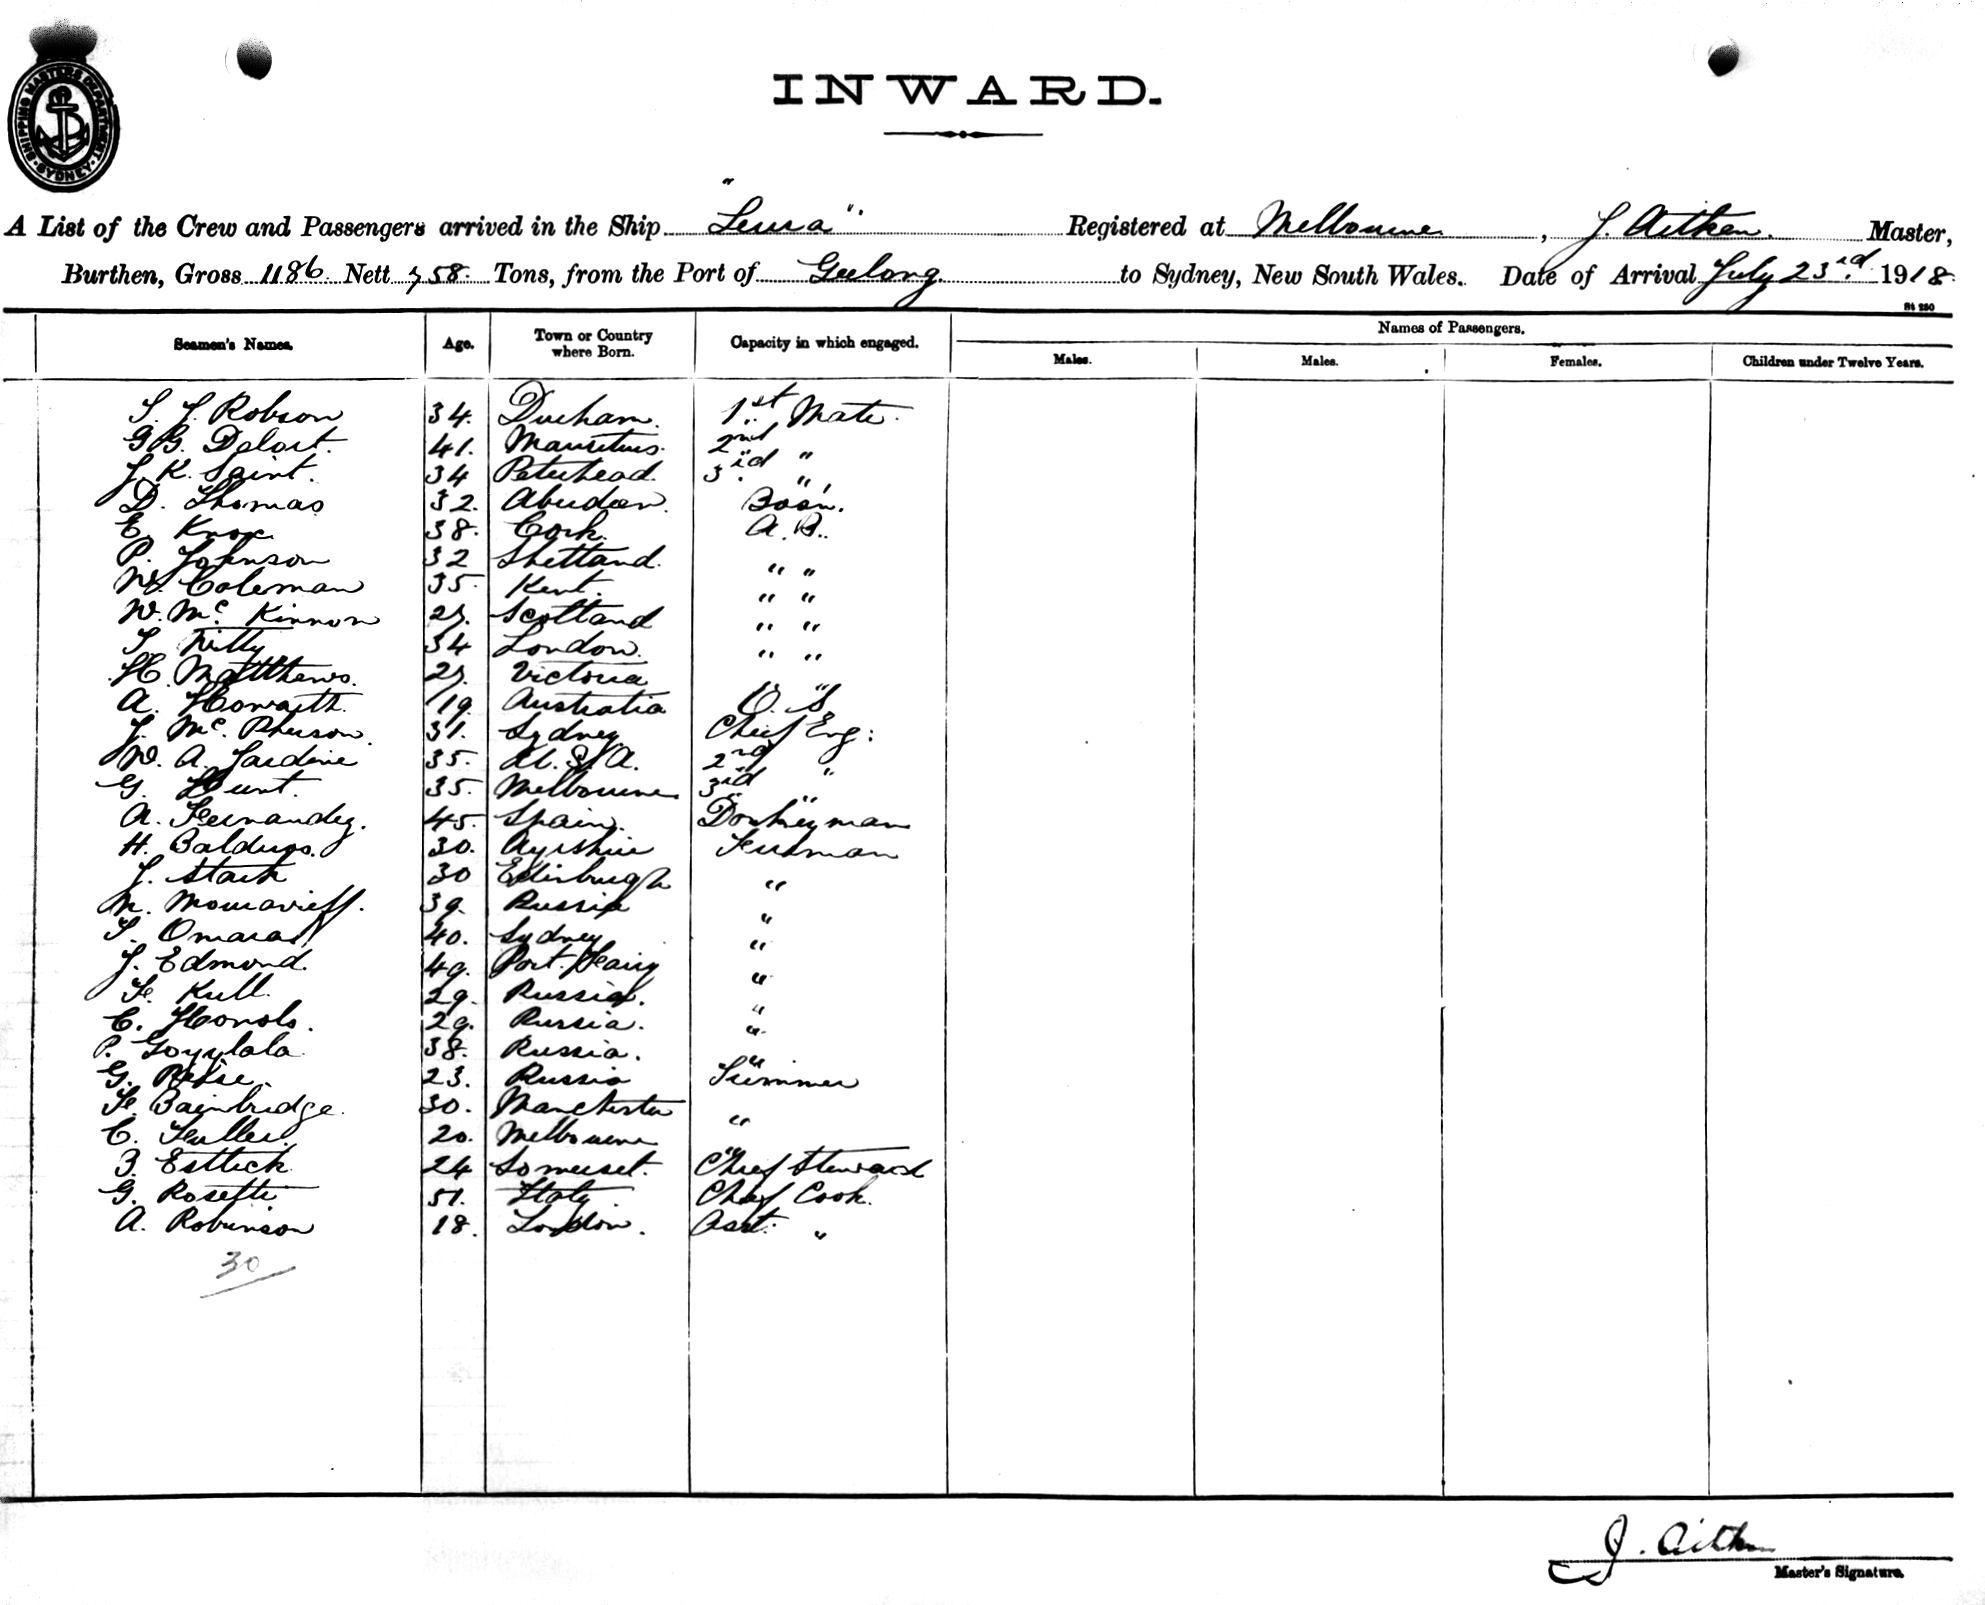 SHIPPING MASTERS DEPARTMENT SYDNEY
INWARD.
A List of the Crew and Passengers arrived in the Ship "Leura" Registered at Melbourne, J. Aitken. Master,
Burthen, Gross 1186 Nett 758 Tons, from the Port of Geelong to Sydney, New South Wales. Date of Arrival July 23rd 1918
St 280
Seamen's Names. Age. Town or Country where Born. Capacity in which engaged. Names of Passengers.
Males. Males. Females. Children under Twelve Years.
S. J. Robson 34. Durham. 1st Mate.
G. G. Delort. 41. Mauritius. 2nd "
J. K. Saint. 34 Peterhead. 3rd "
D. Thomas 32. Aberdeen. Bos'n.
E. Knox 38. Cork. A.B.
P. Johnson 32 Shetland. " "
W. Coleman 35. Kent. " "
W. Mc Kinnon 27. Scotland " "
T. 34 London. " "
H. Matthews. 27. Victoria " "
A. Howarth. 19. Australia O.S
J. Mc Pherson. 31. Sydney Chief Eng:
W. A. Jardine 35. U.S.A. 2nd "
G. Hunt. 35. Melbourne 3rd "
A. Fernandez. 45. Spain. Donkeyman
H. 30. Ayrshire Fireman
J. Stark 30 Edinburgh "
N. 39. Russia "
T. Omara 40. Sydney "
J. Edmond. 49. Port Fairy "
F. Kull. 29. Russia. "
C. 29. Russia. "
P. 38. Russia. "
G. 23. Russia Trimmer
F. Bainbridge. 30. Manchester "
C. Fuller. 20. Melbourne "
B. Estlick 24 Somerset. Chief Steward
G. Rosetti 51. Italy Chief Cook.
A. Robinson 18. London. Asst. "
30
J. Aitken
Master's Signature.